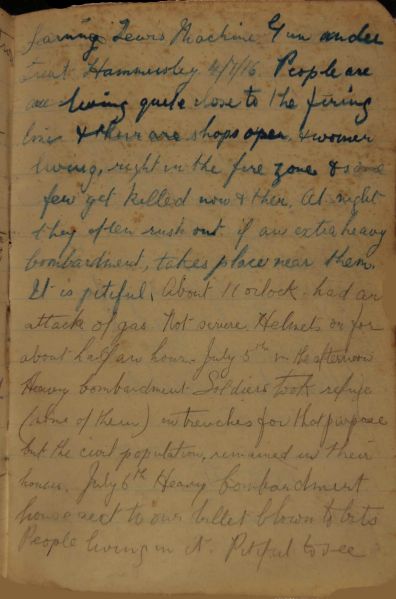 Learning Lewis Machine Gun under
Lieut. Hammersley 4/7/16. People are
are living quite close to the firing
line & there are shops open. & women
living, right in the fire zone & some
few get killed now & then. At night
they often rush out if an extra heavy
bombardment, takes place near them.
It is pitiful. About 11 oclock had an
attack of gas. Not severe. Helmets on for
about half an hour. July 5th in the afternoon
Heavy bombardment Soldiers took refuge
(some of them) in trenches for that purpose
but the civil population, remained in their
houses. July 6th Heavy bombardment
house next to our billet blown to bits
People living in it. Pitiful to see